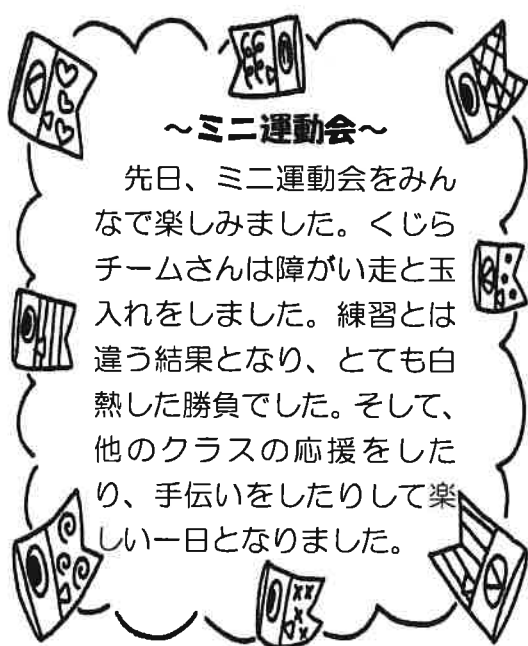 ～ミニ運動会～
先日、ミニ運動会をみん
なで楽しみました。くじら
チームさんは障がい走と玉
入れをしました。練習とは
違う結果となり、とても白
熱した勝負でした。そして、
他のクラスの応援をした
り、手伝いをしたりして楽
しい一日となりました。